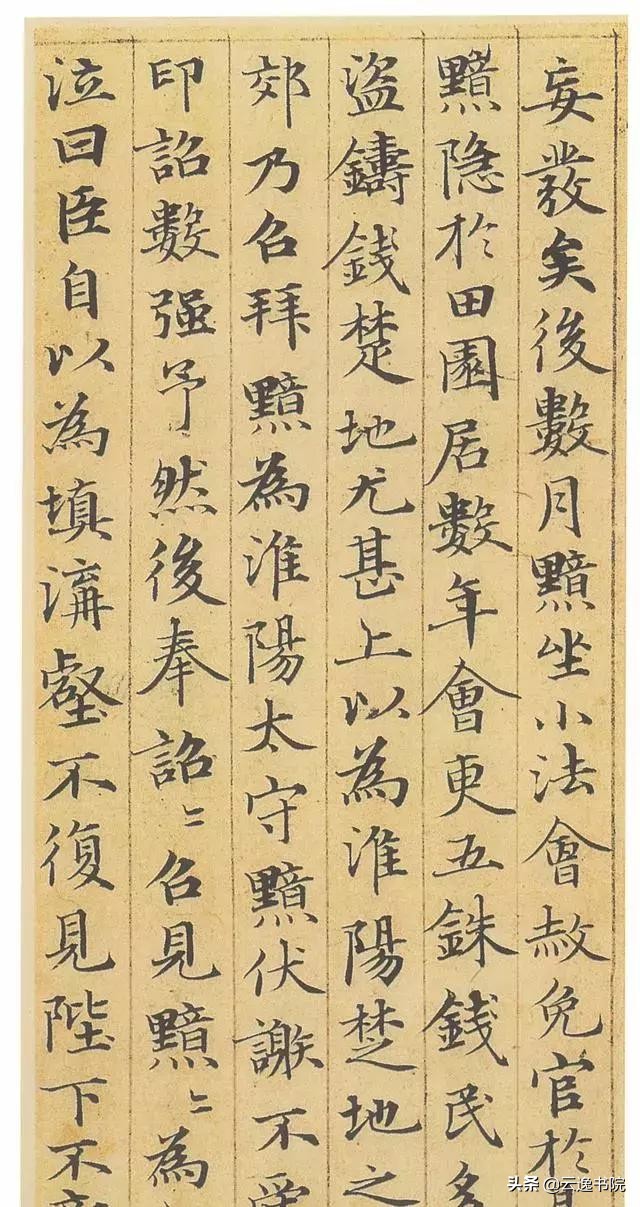 妄發矣後數月黯坐小法會赦免官於
黯隐於田園居數年會更五銖錢民多
盜鑄錢楚地尤甚上以為淮陽楚地之
郊乃召拜黯為淮陽太守黯伏謝不受
印詔數强予然後奉詔〻召見黯〻為
泣曰臣自以為填溝壑不復見陛下不
头条 @云逸书院